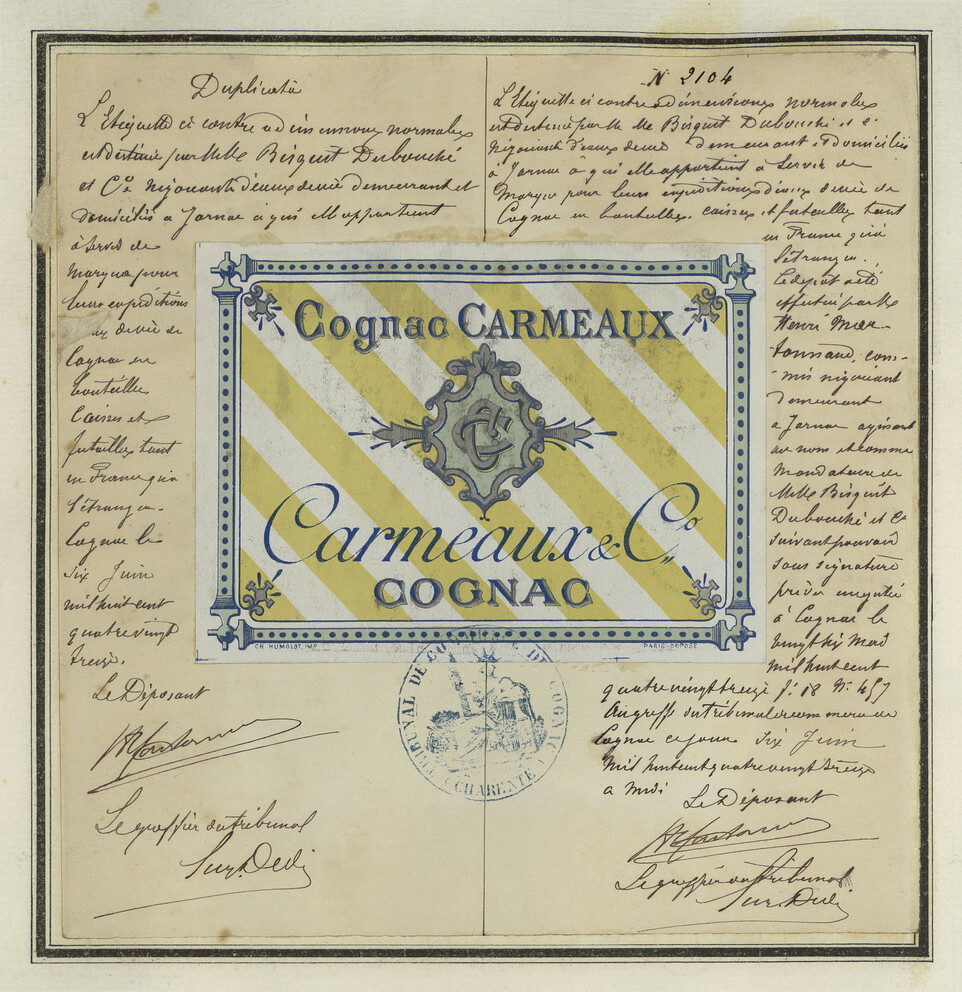 Duplicata
L'Etiquette ci contre de dimensions normales
est destinée par MMrs Bisquit Dubouché
et Cie Négociants d'eaux de vie demeurant et
domiciliés a Jarnac a qui elle appartient
à servir de
Marque pour
leurs expéditions
de vie de
Cognac en
bouteilles
Caisses et
futailles tant
en France qu'a
l'étranger.
Cognac le
Six Juin
mil huit cent
quatre vingt
treize.
Le Déposant
Le greffier du tribunal
N° 2104
L'Etiquette ci contre de dimensions normales
est destinée par MMrs Bisquit Dubouché et Cie
Négociants d'eaux de vie demeurant et domiciliés
à Jarnac à qui elle appartient à Servir de
Marque pour leurs expéditions d'eaux de vie de
Cognac en bouteilles, caisses et futailles tant
en France qu'à
l'étranger.
Le dépôt a été
effectué par Mr
Henri
commis négociant
demeurant
a Jarnac agissant
au nom et comme
Mandataire de
MMrs Bisquit
Dubouché et Cie
suivant pouvoir
sous signature
privée enregistré
à Cognac le
vingt six Mai
mil huit cent
quatre vingt treize fo 18 No 457
Au greffe du tribunal de commerce de
Cognac ce jour Six Juin
Mil huit cent quatre vingt treize
a Midi
Le Déposant
Le greffier du tribunal
Cognac CARMEAUX
CC
Carmeaux & Co
COGNAC
CH. HUMBLOT, IMP.
PARIS-DÉPOSÉ
TRIBUNAL DE COMMERCE DE COGNAC
(CHARENTE)